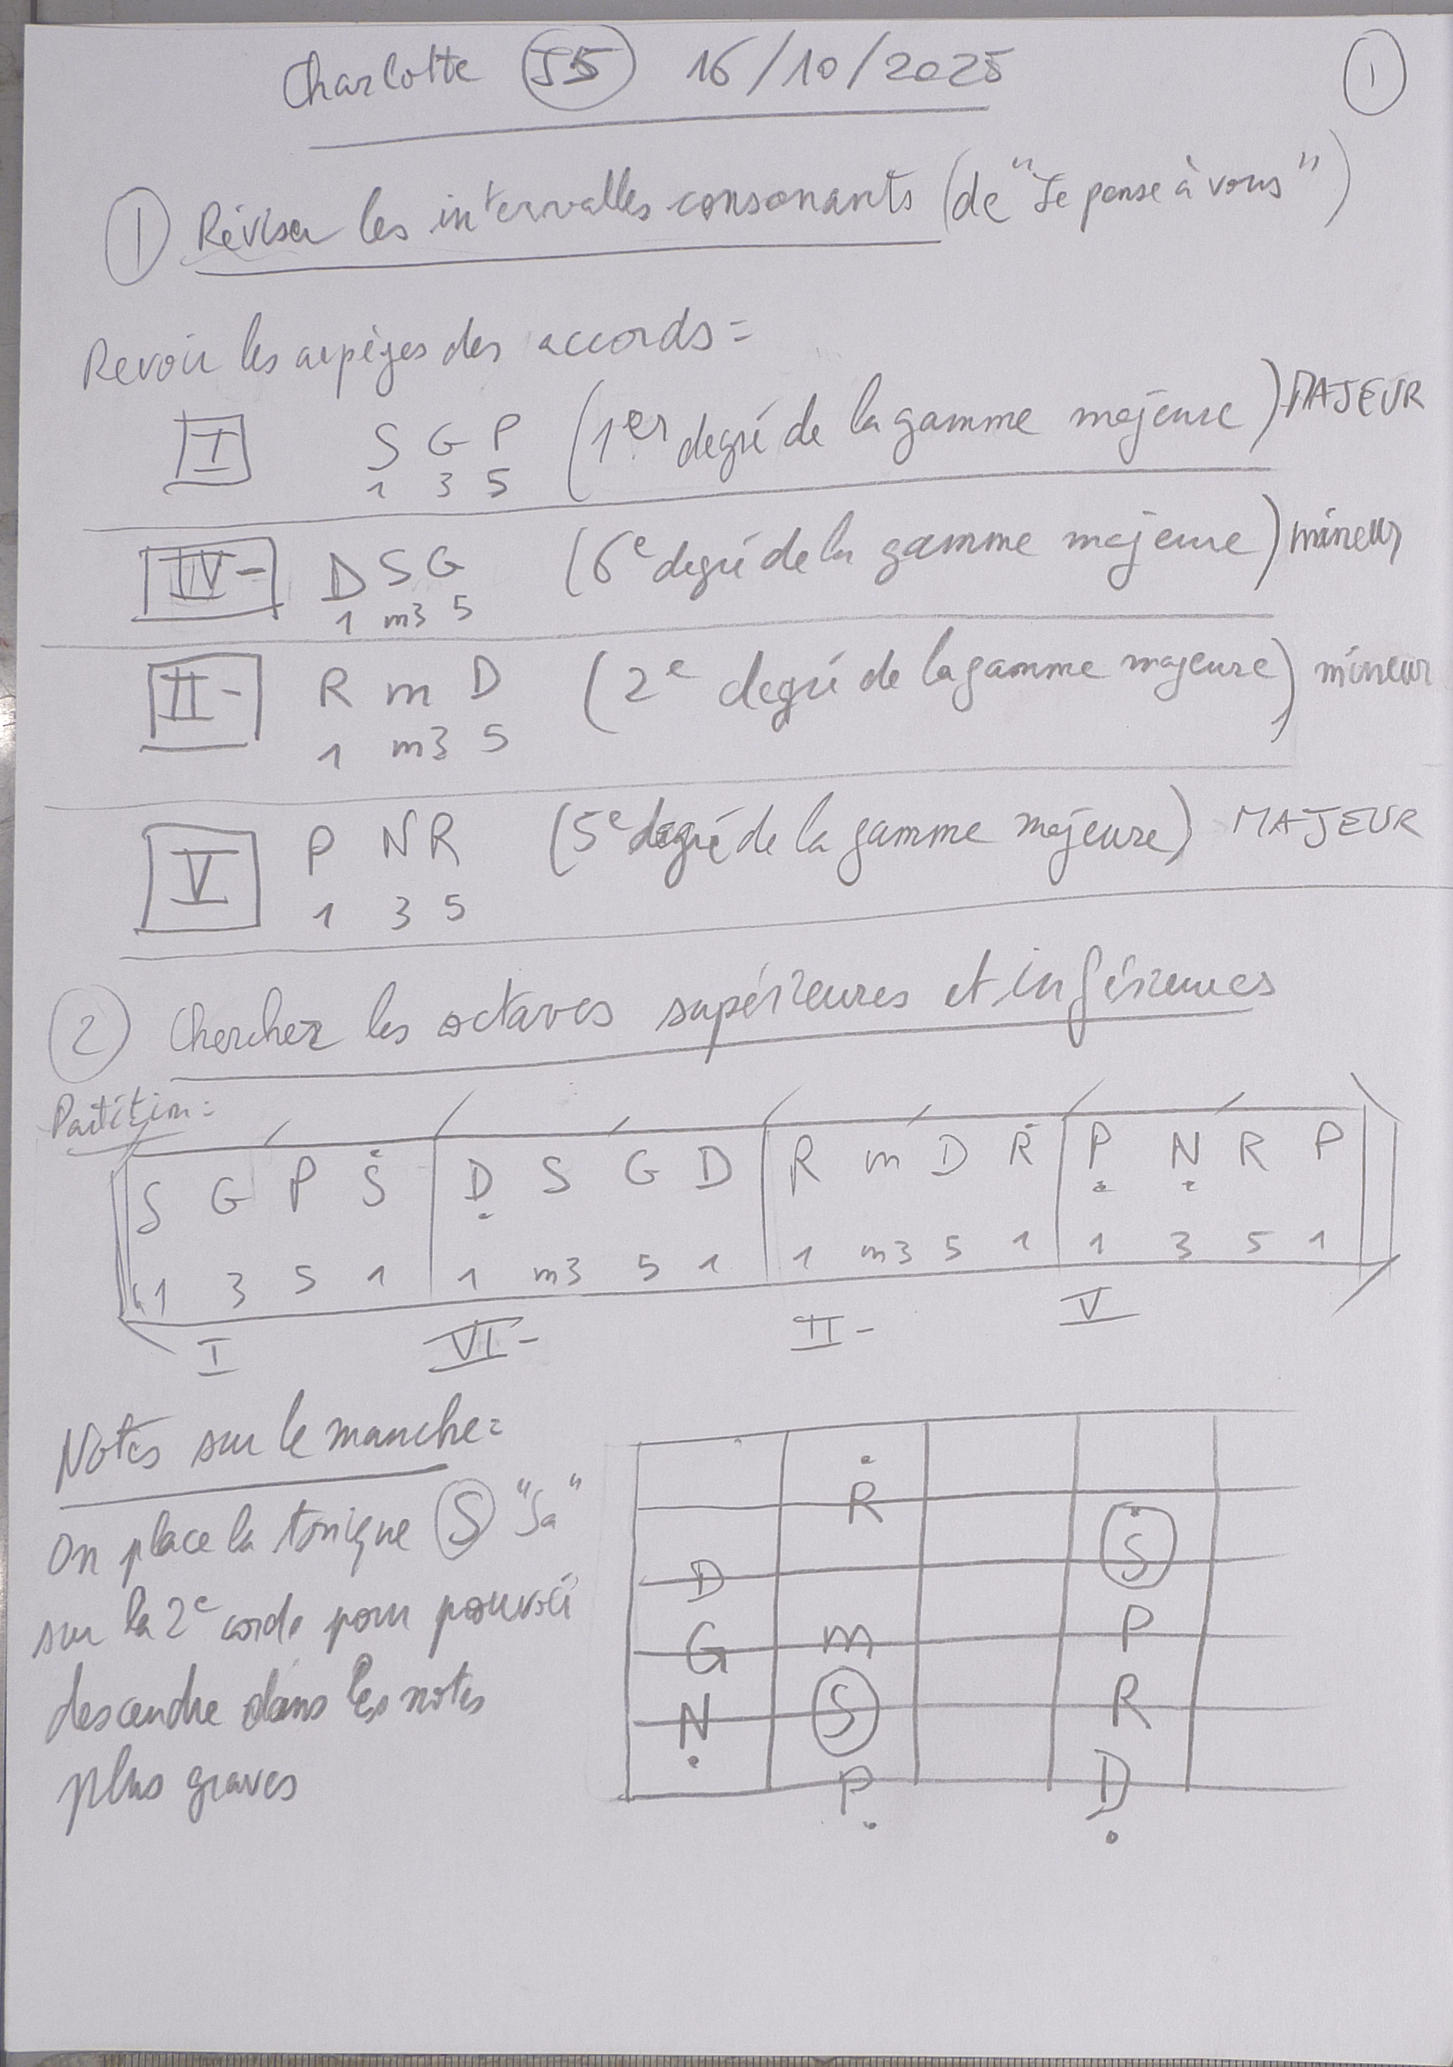 Charlotte J5 16/10/2025
1
1 Réviser les intervalles consonants (de "Je pense à vous")
Revoir les arpèges des accords =
I S G P (1er degré de la gamme majeure) MAJEUR
1 3 5
IV- D S G (6e degré de la gamme majeure) mineur
1 m3 5
II- R m D (2e degré de la gamme majeure) mineur
1 m3 5
V P N R (5e degré de la gamme majeure) MAJEUR
1 3 5
2 Chercher les octaves supérieures et inférieures
Partition :
S G P Ṡ | Ḍ S G D | R m D Ṙ | P̣ Ṇ R P
1 3 5 1 | 1 m3 5 1 | 1 m3 5 1 | 1 3 5 1
I VI- II- V
Notes sur le manche =
On place la tonique S "Sa"
sur la 2e corde pour pouvoir
descendre dans les notes
plus graves
Ṙ
Ṡ
D
G m P
Ṇ S R
P̣ Ḍ